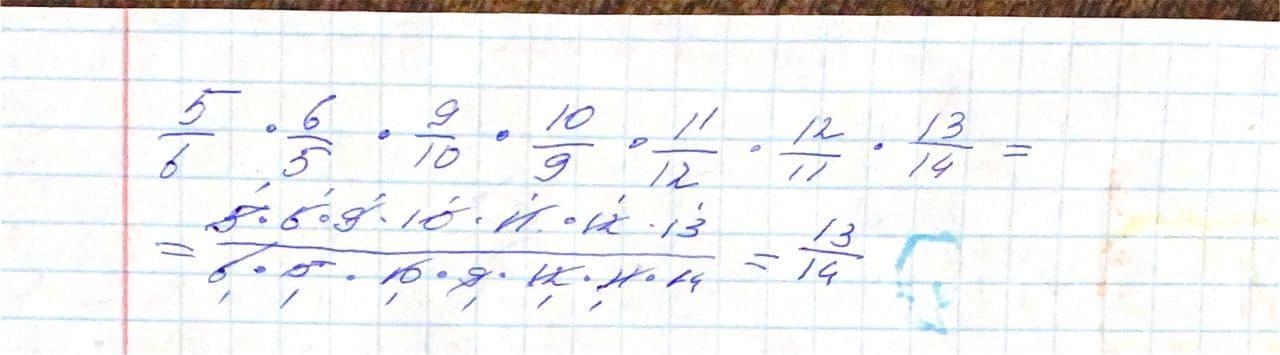 5/6 · 6/5 · 9/10 · 10/9 · 11/12 · 12/11 · 13/14 =
= 5·6·9·10·11·12·13/6·5·10·9·12·11·14 = 13/14